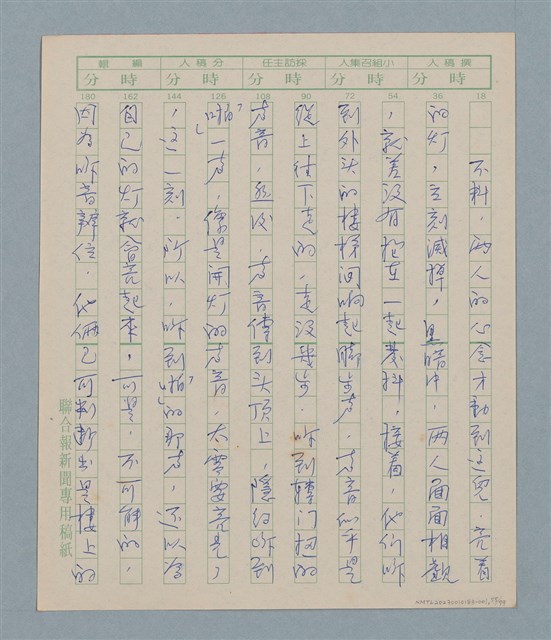 撰稿人 小組召集人 採訪主任 分稿人 編輯
時分 時分 時分 時分 時分
18 36 54 72 90 108 126 144 162 180
不料，兩人的心念才動到這兒，亮着
的灯，立刻滅掉，黑暗中，兩人面面相覷
，就差沒有抱在一起發抖，接着，他们听
到外头的樓梯间响起脚步声，声音似乎是
從上往下走的，走沒幾步，听到轉门把的
声音，然後，声音傳到头顶上，隱約听到
「啪」一声，像是開灯的声音，太需要亮光了
，這一刻，所以，听到「啪」的那声，还以為
自己的灯就會亮起來，可是，不可能的，
因為听音辨位，他倆已可判断出是樓上的
聯合報新聞專用稿紙